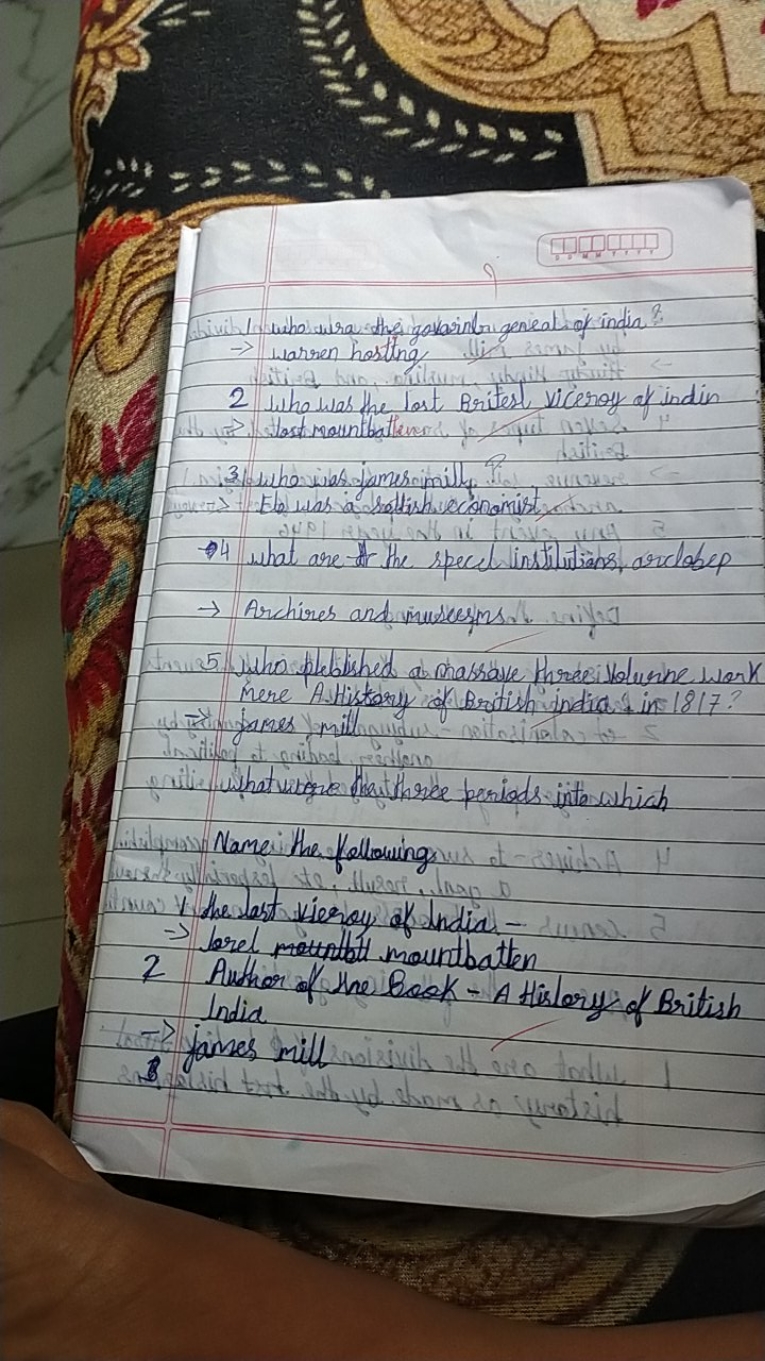 1 who wra the govarinlor genieat of india?
-> warren hosting
2 who was the lost Britest viceroy of indin
-> lost mountbatleven
3 who was james milly ?
-> Eb was a scottish economist
4 what are the specel institutions, arclobep
-> Archires and museesms
5 who pleblished a massave three volurne work
mere A History of British india in 1817?
-> james mill
what were the three periods into which
Name the following
1 the last vieroy of India -
-> lorel mountbatten
2 Author of the Book - A History of British
India
-> james mill
3